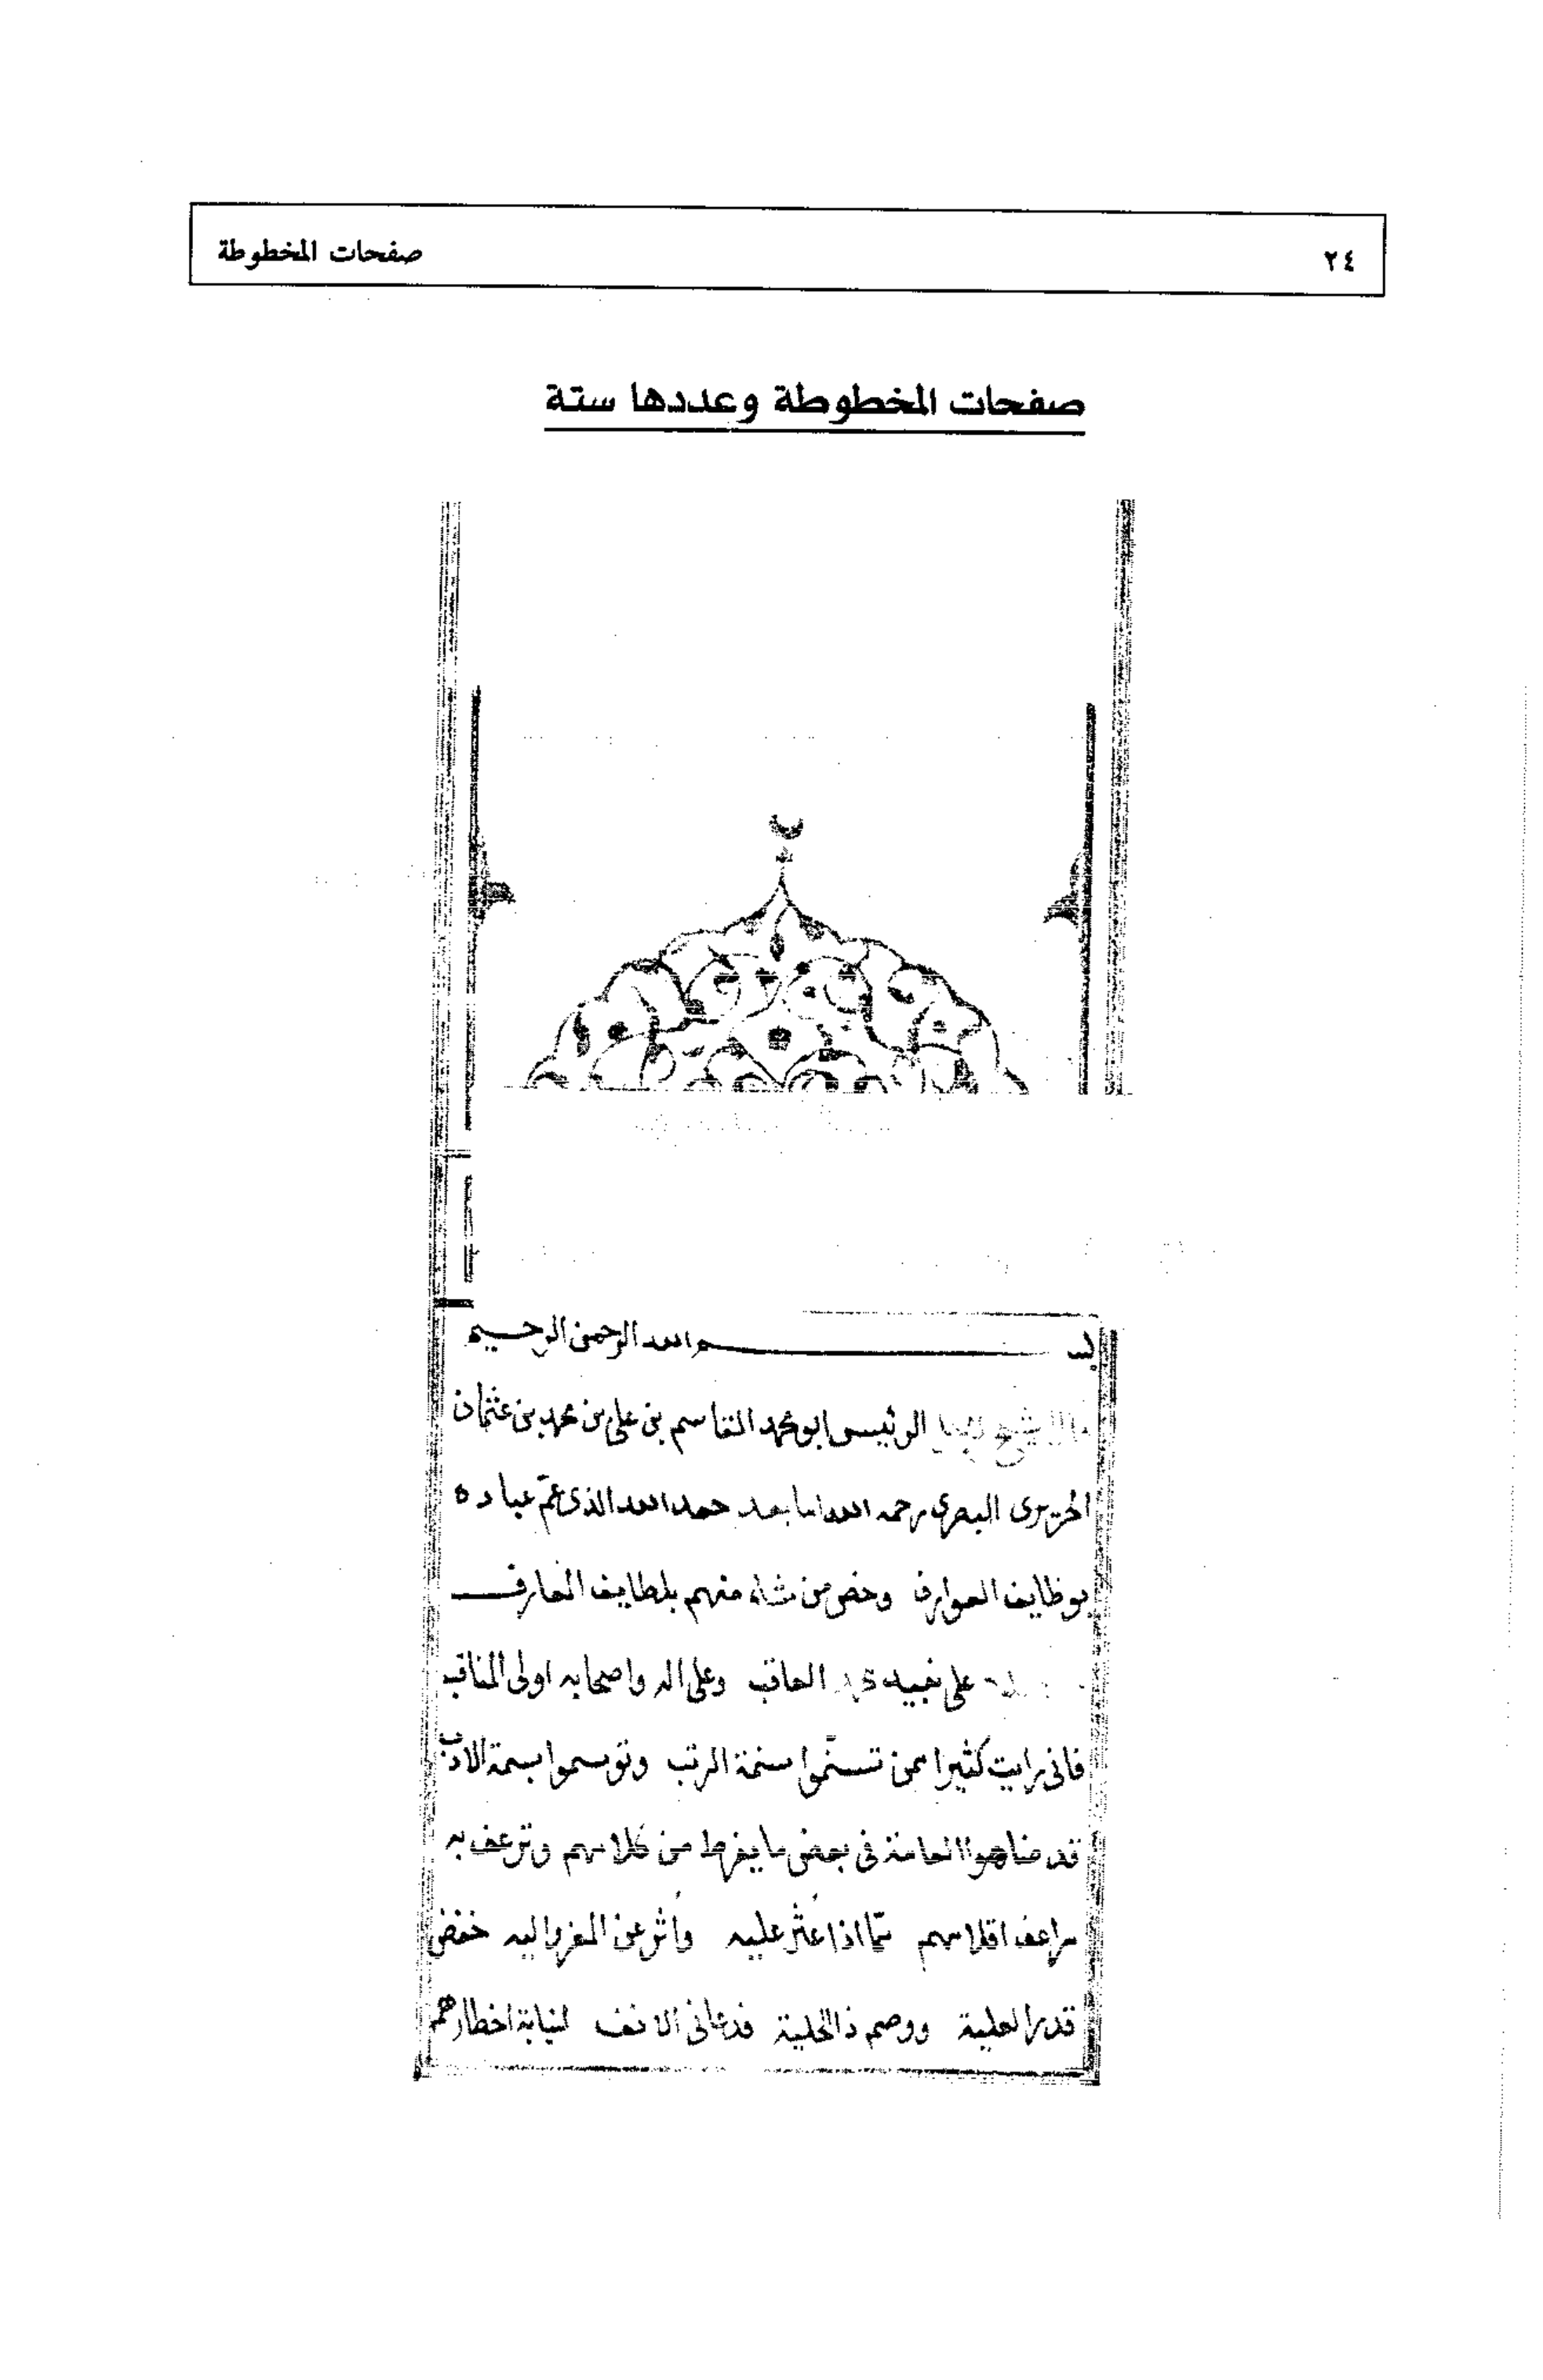 ٢٤
صفحات المخطوطة
صفحات المخطوطة وعددها ستة
بسم الله الرحمن الرحيم
الشيخ الرئيس ابو محمد القاسم بن على بن محمد بن عثمان
الحريرى البصري رحمه الله اما بعد حمد الله الذى عمّ عباده
بوظايف العوارف وخص من شاء منهم بلطايف المعارف
على نبيه محمد العاقب وعلى اله واصحابه اولى المناقب
فانى رايت كثيرا ممن تسنّموا اسنمة الرتب وتوسموا بسمة الادب
قد ضاهوا العامة فى بعض ما يفرط من كلامهم وترعف به
مراعف اقلامهم ممّا اذا عُثر عليه وأُثر عن المعزو اليه خفض
قدر العلية ووصم ذا الحلية فدعانى الانف لنباهة اخطارهم